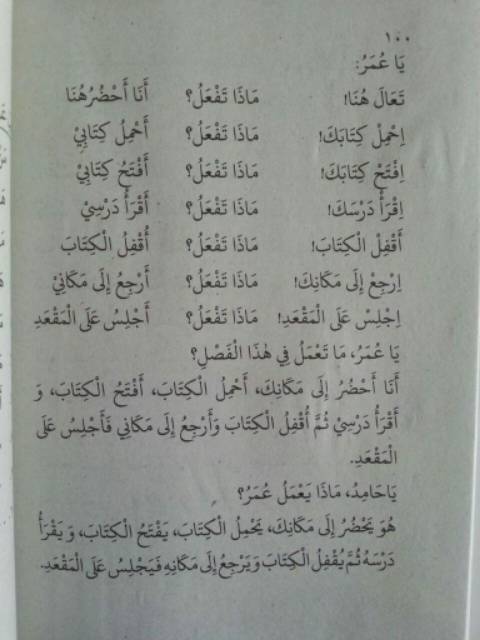 ١٠٠
يَا عُمَرُ:
تَعَالَ هُنَا! مَاذَا تَفْعَلُ؟ أَنَا أَحْضُرُ هُنَا
اِحْمِلْ كِتَابَكَ! مَاذَا تَفْعَلُ؟ أَحْمِلُ كِتَابِيْ
اِفْتَحْ كِتَابَكَ! مَاذَا تَفْعَلُ؟ أَفْتَحُ كِتَابِيْ
اِقْرَأْ دَرْسَكَ! مَاذَا تَفْعَلُ؟ أَقْرَأُ دَرْسِيْ
أَقْفِلْ الْكِتَابَ! مَاذَا تَفْعَلُ؟ أُقْفِلُ الْكِتَابَ
اِرْجِعْ إِلَى مَكَانِكَ! مَاذَا تَفْعَلُ؟ أَرْجِعُ إِلَى مَكَانِيْ
اِجْلِسْ عَلَى الْمَقْعَدِ! مَاذَا تَفْعَلُ؟ أَجْلِسُ عَلَى الْمَقْعَدِ
يَا عُمَرُ، مَا تَعْمَلُ فِي هٰذَا الْفَصْلِ؟
أَنَا أَحْضُرُ إِلَى مَكَانِكَ، أَحْمِلُ الْكِتَابَ، أَفْتَحُ الْكِتَابَ، وَ
أَقْرَأُ دَرْسِيْ ثُمَّ أُقْفِلُ الْكِتَابَ وَأَرْجِعُ إِلَى مَكَانِي فَأَجْلِسُ عَلَى
الْمَقْعَدِ.
يَا حَامِدُ، مَاذَا يَعْمَلُ عُمَرُ؟
هُوَ يَحْضُرُ إِلَى مَكَانِكَ، يَحْمِلُ الْكِتَابَ، يَفْتَحُ الْكِتَابَ، وَيَقْرَأُ
دَرْسَهُ ثُمَّ يُقْفِلُ الْكِتَابَ وَيَرْجِعُ إِلَى مَكَانِهِ فَيَجْلِسُ عَلَى الْمَقْعَدِ.